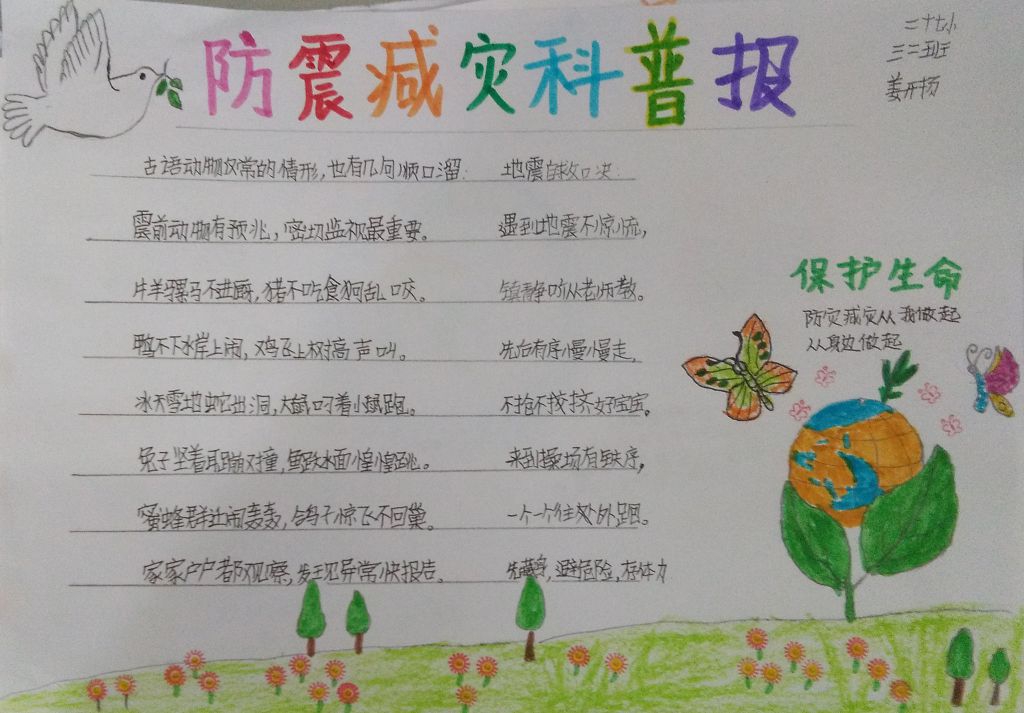 防震减灾科普报
二十七小
三三班
姜开杨
古语动物反常的情形,也有几句顺口溜:
震前动物有预兆,密切监视最重要。
牛羊骡马不进厩,猪不吃食狗乱咬。
鸭不下水岸上闹,鸡飞上树高声叫。
冰天雪地蛇出洞,大鼠叼着小鼠跑。
兔子竖着耳蹦又撞,鱼跃水面惶惶跳。
蜜蜂群迁闹轰轰,鸽子惊飞不回巢。
家家户户都观察,发现异常快报告。
地震自救口决:
遇到地震不惊慌,
镇静听从老师教。
先后有序慢慢走,
不抢不挤好宝宝。
来到操场有秩序,
一个一个往外跑。
先藏身,避危险,存体力
保护生命
防灾减灾从我做起
从身边做起